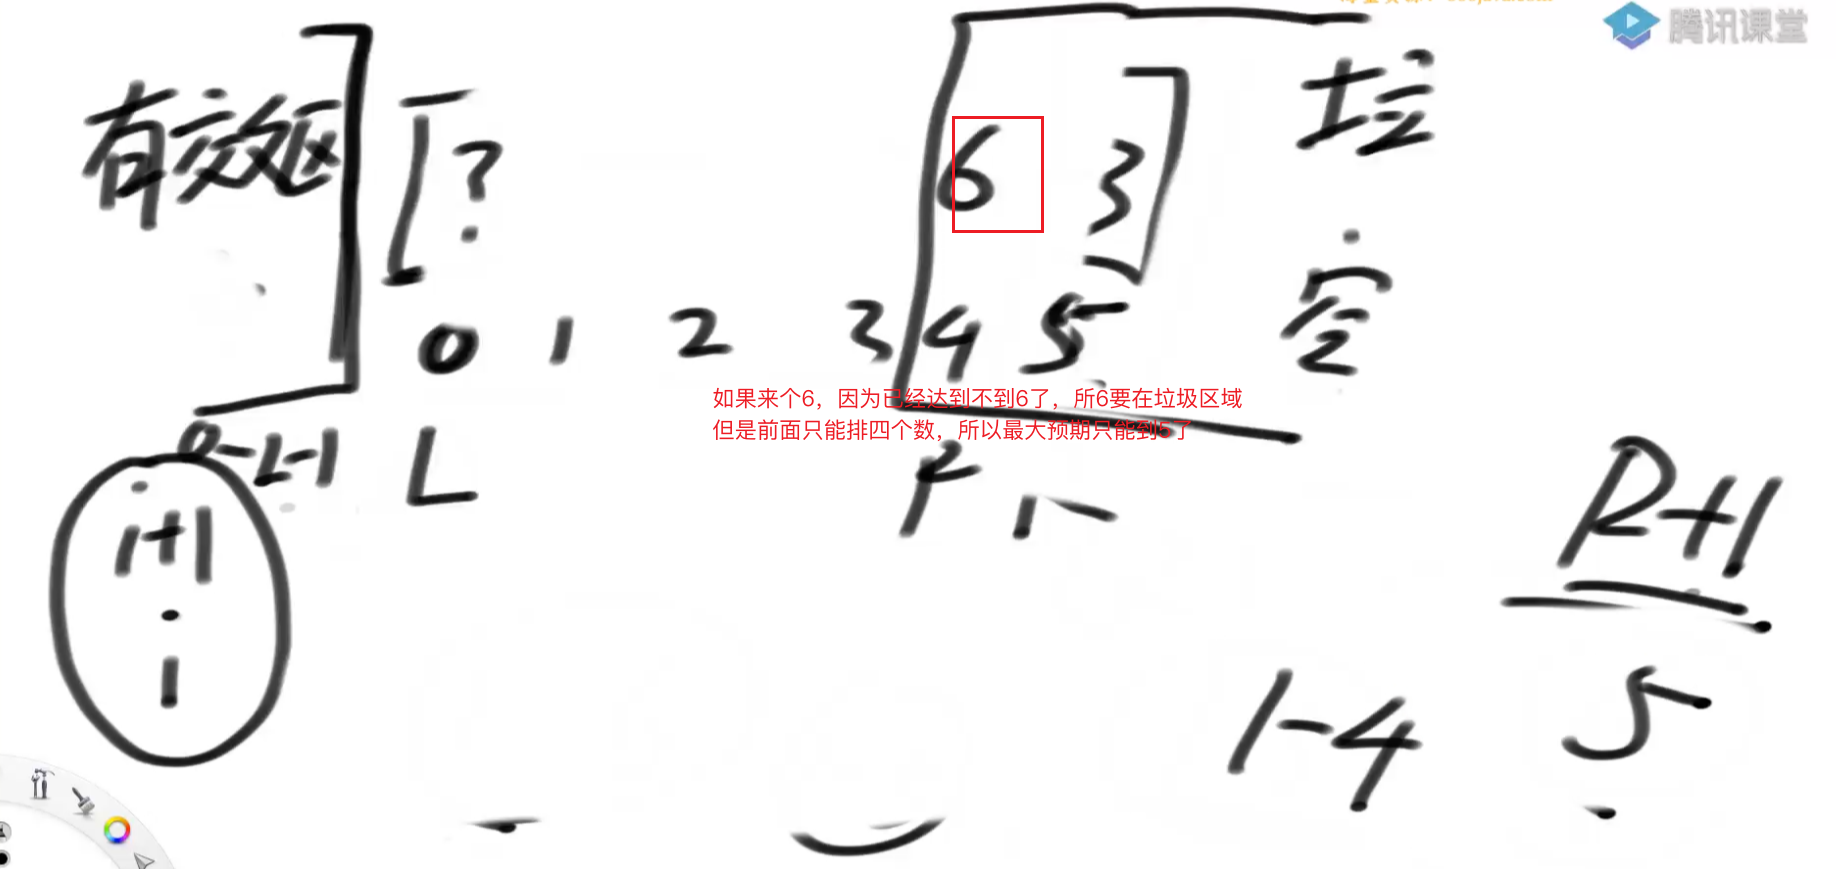 腾讯课堂
有效区
?
6 3
垃
0 1 2 3 4 5
如果来个6，因为已经达到不到6了，所6要在垃圾区域
但是前面只能排四个数，所以最大预期只能到5了
0-L-1 L
R+1
i+1
i
1-4 5